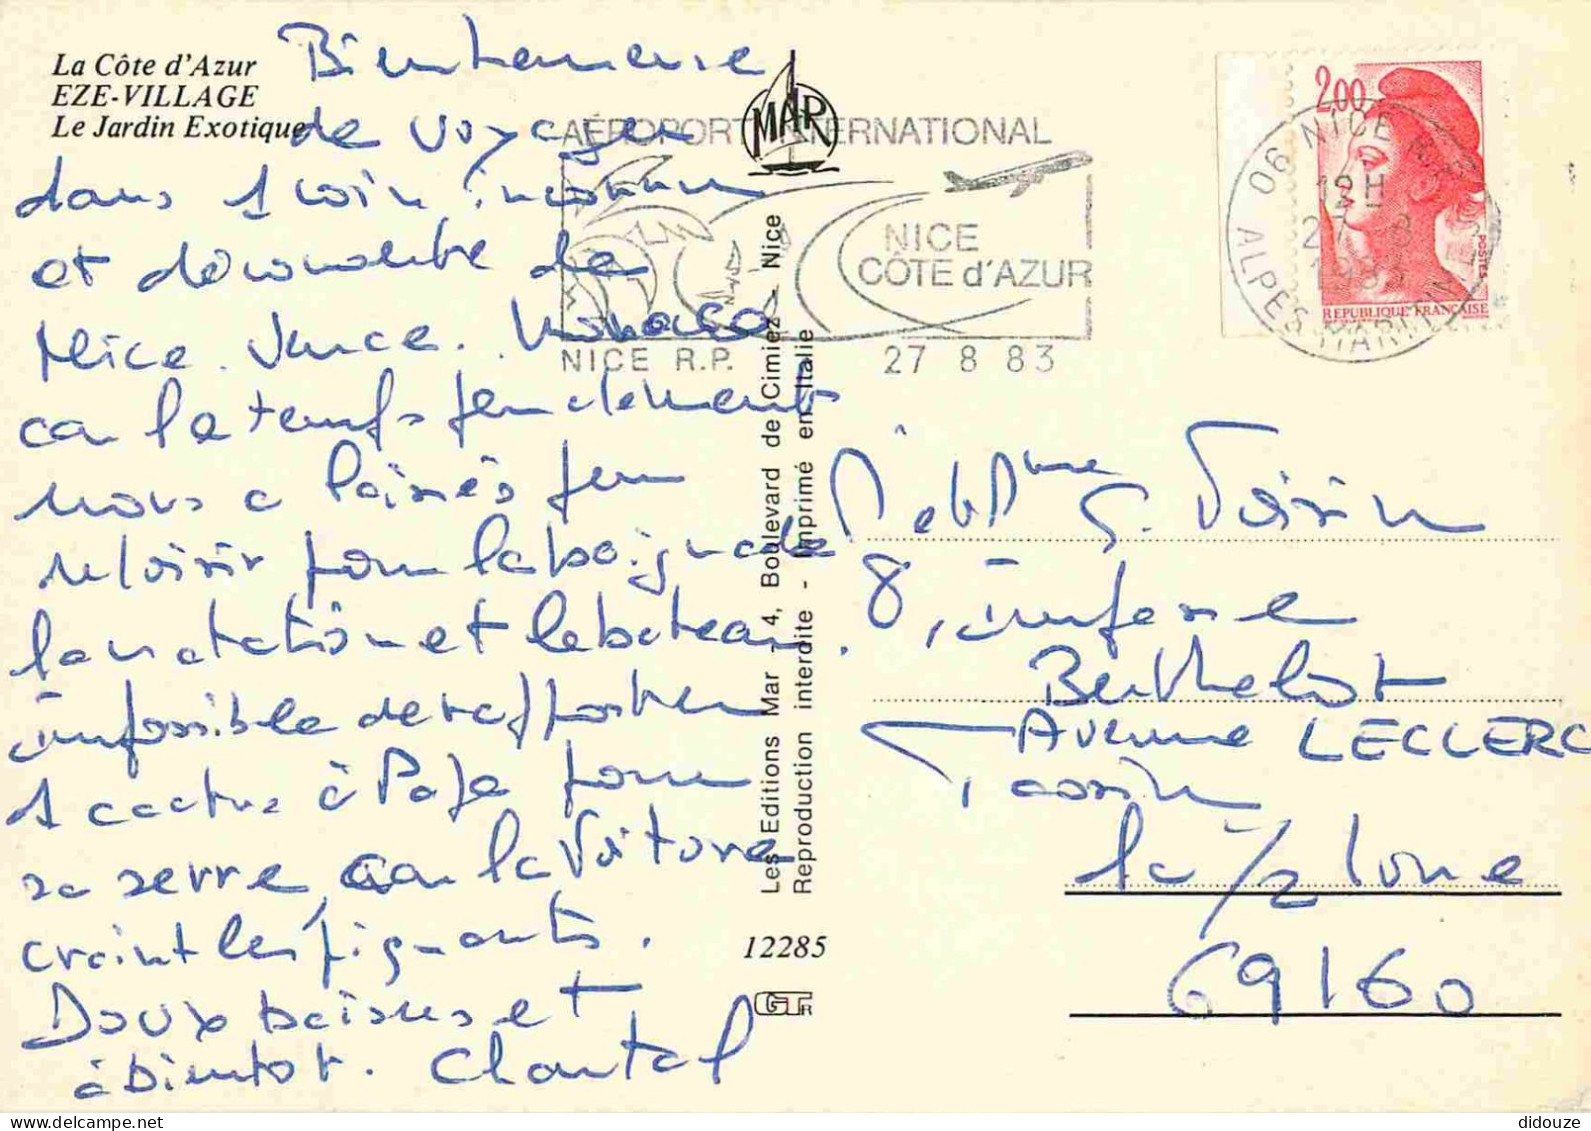 La Côte d'Azur
EZE-VILLAGE
Le Jardin Exotique
Bienheureuse
de voyager
dans 1 coin inconnu
et découverte de
Nice. Vence. Monaco
car le temps
nous a laissés peu
de loisir pour la baignade
la natation et le bateau.
impossible de rapporter
1 cactus à Papa pour
sa serre, car la voiture
craint les piquants.
Doux baisers et
à bientôt. Chantal
MAR
AÉROPORT INTERNATIONAL
NICE
CÔTE d'AZUR
NICE R.P. 27 8 83
Les Editions Mar - 4, Boulevard de Cimiez - Nice
Reproduction interdite - Imprimé en Italie
12285
2.00
POSTES
REPUBLIQUE FRANÇAISE
06 NICE R.P.
12H
27 8
1983
ALPES MARITIMES
Mme G. Voisin
8, impasse
Berthelot
Avenue LECLERC
Tassin
la 1/2 lune
69160
didouze